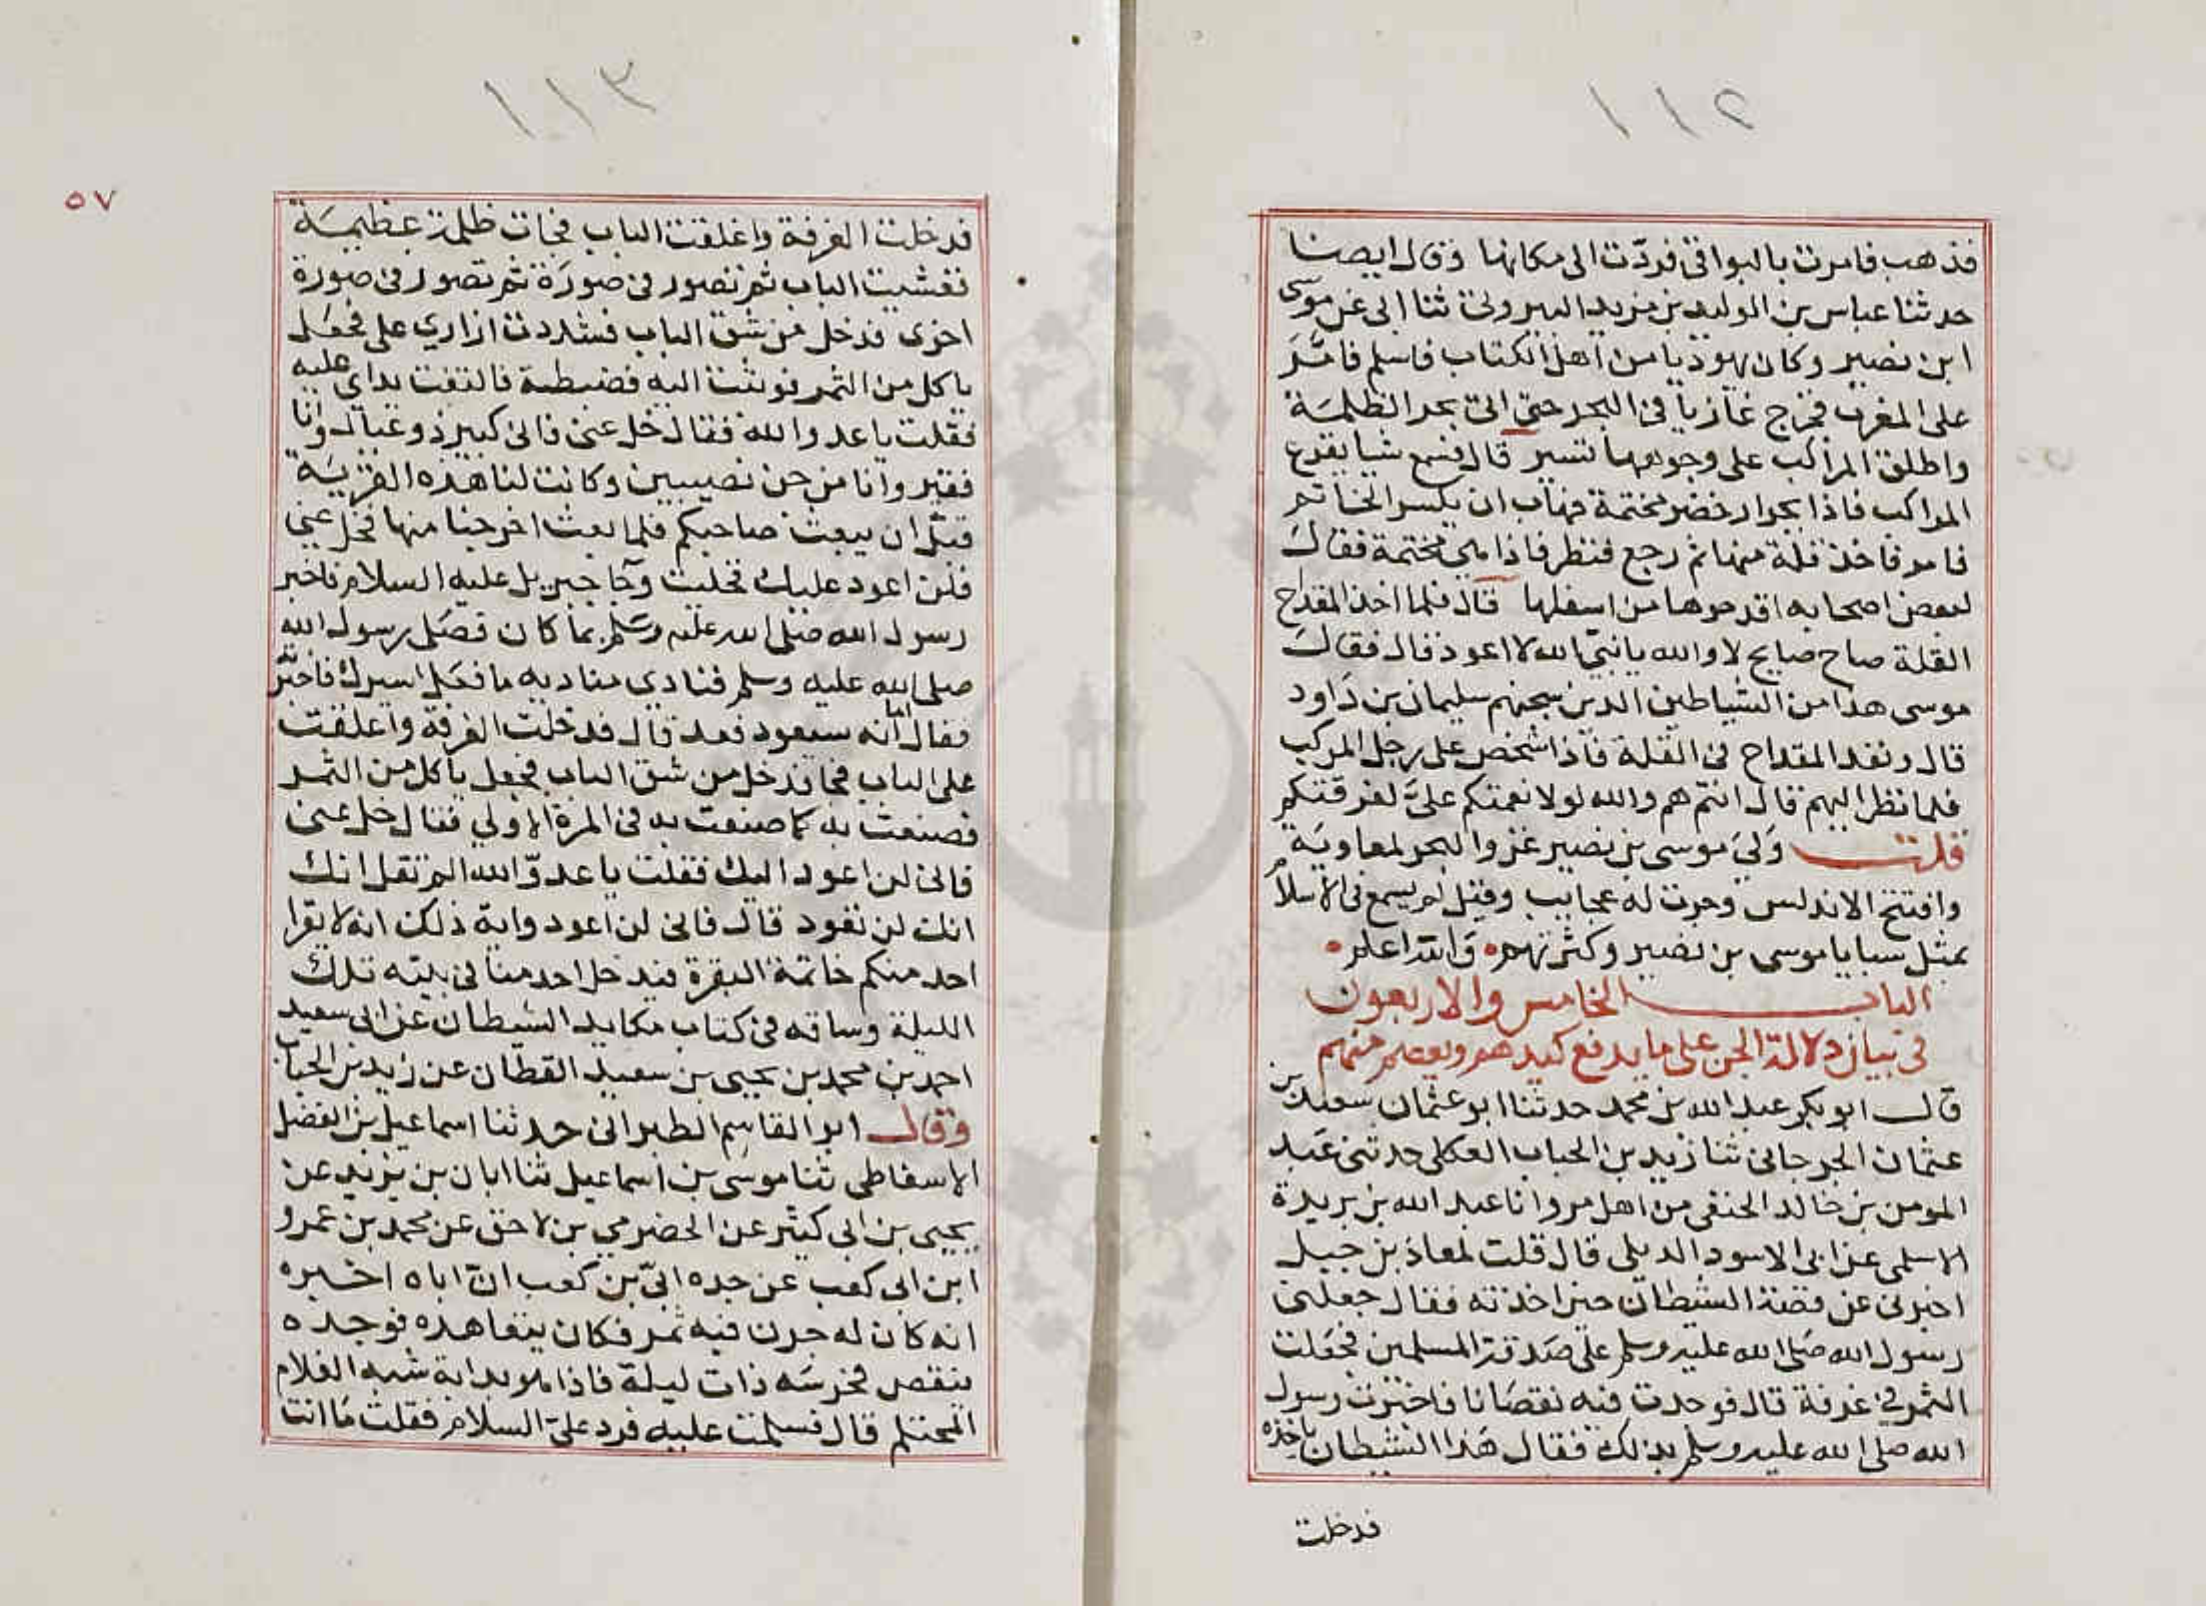 ١١٢
فذهب فامرت بالبواقي فردّت الى مكانها وقال ايضا
حدثنا عباس بن الوليد بن مزيد البيروتي ثنا ابي عن موسى
ابن نصير وكان يهوديا من اهل الكتاب فاسلم فامّر
على المغرب فخرج غازيا في البحر حتى اتى بحر الظلمة
واطلق المراكب على وجوهها تسير قال فسمع شيا يقرع
المراكب فاذا بجرار خضر مختمة فهاب ان يكسر الخاتم
فامر فاخذ قلة منها ثم رجع فنظر فاذا هي مختمة فقال
لبعض اصحابه اقدحوها من اسفلها قال فلما اخذ المقداح
القلة صاح صايح لا والله يا نبيّ الله لا اعود قال فقال
موسى هذا من الشياطين الذين سجنهم سليمان بن داود
قال ونفذ المقداح في القلة فاذا شخص على رجل المركب
فلما نظر اليهم قال انتم هم والله لولا نعمتكم عليّ لغرقتكم
قلت ولي موسى بن نصير غزو البحر لمعاوية
وافتتح الاندلس وجرت له عجايب وقيل لم يسمع في الاسلام
بمثل سبايا موسى بن نصير وكثرتهم والله اعلم
الباب الخامس والاربعون
في بيان دلالة الجن على ما يدفع كيدهم ويعصم منهم
قال ابو بكر عبد الله بن محمد حدثنا ابو عثمان سعيد بن
عثمان الجرجاني ثنا زيد بن الحباب العكلي حدثني عبد
المومن بن خالد الحنفي من اهل مرو انا عبد الله بن بريدة
الاسلمي عن ابي الاسود الديلي قال قلت لمعاذ بن جبل
اخبرني عن قصة الشيطان حين اخذته فقال جعلني
رسول الله صلى الله عليه وسلم على صدقة المسلمين فجعلت
التمر في غرفة قال فوجدت فيه نقصانا فاخبرت رسول
الله صلى الله عليه وسلم بذلك فقال هذا الشيطان ياخذه
فدخلت
١١٣
٥٧
فدخلت الغرفة واغلقت الباب فجات ظلمة عظيمة
فغشيت الباب ثم تصور في صورة ثم تصور في صورة
اخرى فدخل من شق الباب فشددت ازاري علي فجعل
ياكل من التمر فوثبت اليه فضبطته فالتفت يداي عليه
فقلت يا عدو الله فقال خل عني فاني كبير ذو عيال وانا
فقير وانا من جن نصيبين وكانت لنا هذه القرية
قبل ان يبعث صاحبكم فلما بعث اخرجنا منها فخل عني
فلن اعود عليك فخليت وجا جبريل عليه السلام فاخبر
رسول الله صلى الله عليه وسلم بما كان فصلى رسول الله
صلى الله عليه وسلم فنادي مناديه ما فعل اسيرك فاخبرته
فقال اما انه سيعود فعد قال فدخلت الغرفة واغلقت
على الباب فجا فدخل من شق الباب فجعل ياكل من التمر
فصنعت به كما صنعت به في المرة الاولي فقال خل عني
فاني لن اعود اليك فقلت يا عدوّ الله الم تقل انك
انك لن تعود قال فاني لن اعود واية ذلك انه لا يقرا
احد منكم خاتمة البقرة فيدخل احد منا في بيته تلك
الليلة وساقه في كتاب مكايد الشيطان عن ابي سعيد
احمد بن محمد بن يحيى بن سعيد القطان عن زيد بن الحباب
وقال ابو القاسم الطبراني حدثنا اسماعيل بن الفضل
الاسفاطي ثنا موسى بن اسماعيل ثنا ابان بن يزيد عن
يحيى بن ابي كثير عن الحضرمي بن لاحق عن محمد بن عمرو
ابن ابي كعب عن جده ابيّ بن كعب انّ اباه اخبره
انه كان له جرن فيه تمر فكان يتعاهده فوجده
ينقص فحرسه ذات ليلة فاذا هو بدابة شبه الغلام
المحتلم قال فسلمت عليه فرد عليّ السلام فقلت ما انت